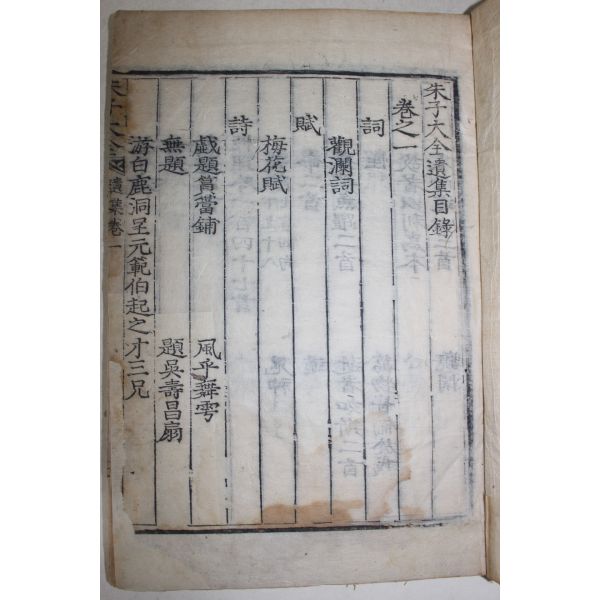 朱子大全遺集目錄
卷之一
詞
觀瀾詞
賦
梅花賦
詩
戱題篔簹鋪　風乎舞雩
無題　題吳壽昌扇
游白鹿洞呈元範伯起之才三兄
朱子大全　遺集卷一